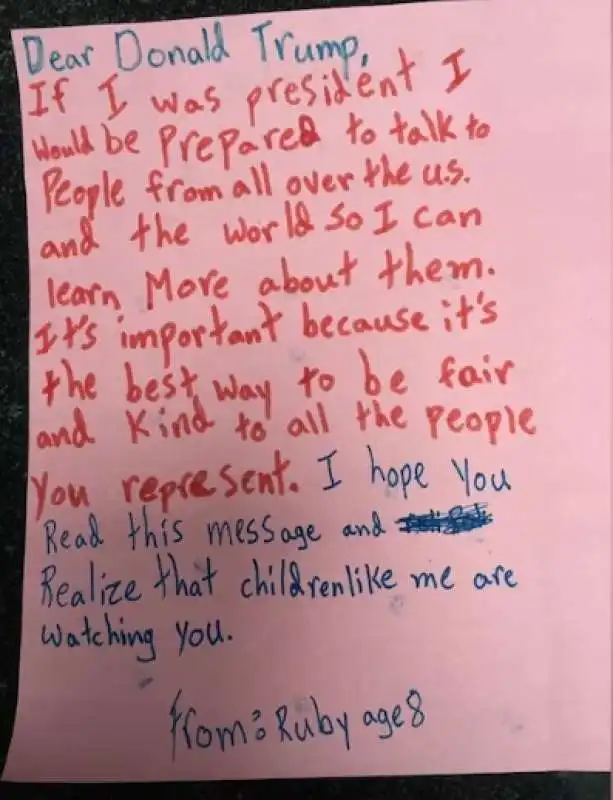 Dear Donald Trump,
If I was president I
would be prepared to talk to
People from all over the u.s.
and the world so I can
learn More about them.
It's important because it's
the best way to be fair
and Kind to all the people
you represent. I hope you
Read this message and
Realize that childrenlike me are
watching you.
from: Ruby age 8